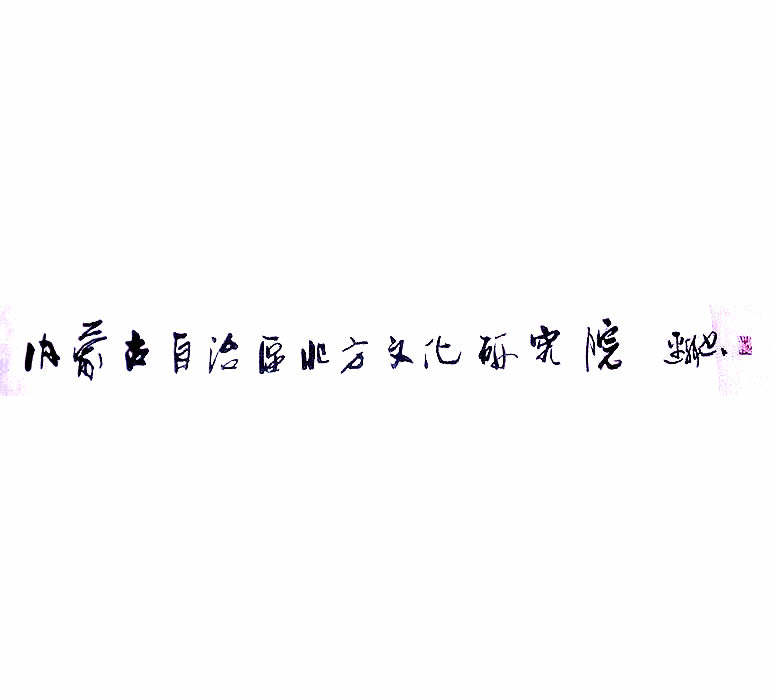 内蒙古自治區北方文化研究院